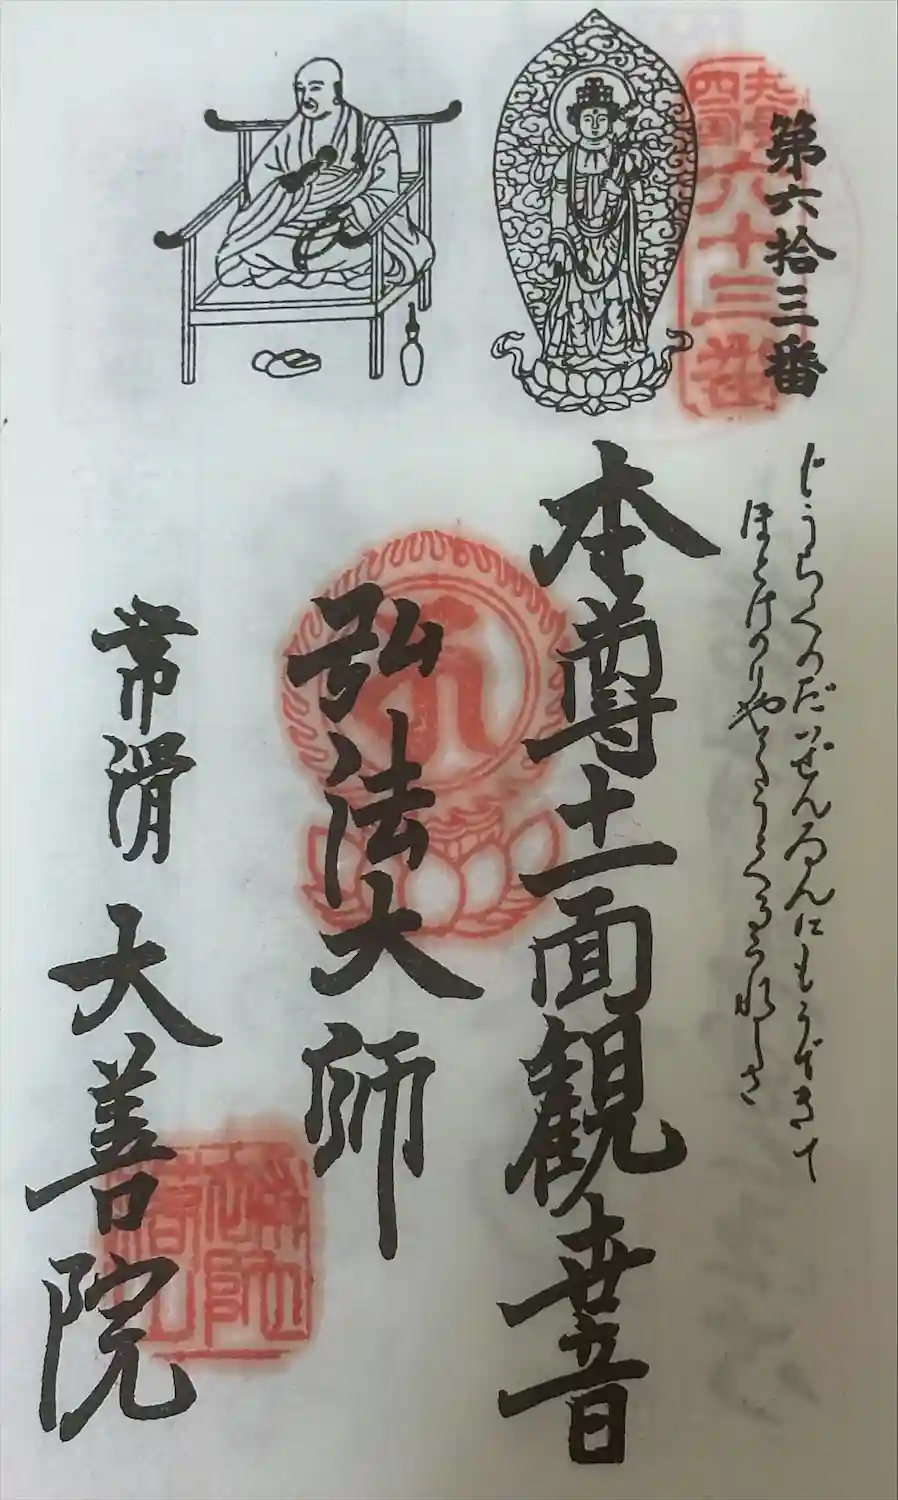 第六拾三番
六十三番
じうらくのだいぜんゐんにもうできて
ほとけのりやくをうくるうれしさ
本尊十一面観世音
弘法大師
常滑 大善院